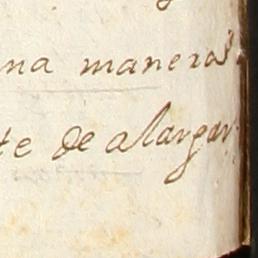 na maneras
te de alargar